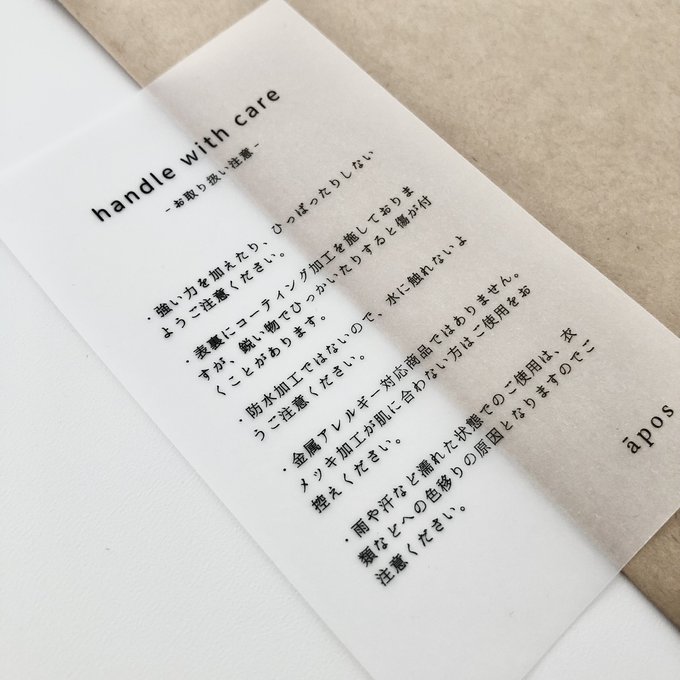 handle with care
- お取り扱い注意 -
・強い力を加えたり、ひっぱったりしない
ようご注意ください。
・表裏にコーティング加工を施しておりま
すが、鋭い物でひっかいたりすると傷が付
くことがあります。
・防水加工ではないので、水に触れないよ
うご注意ください。
・金属アレルギー対応商品ではありません。
メッキ加工が肌に合わない方はご使用をお
控えください。
・雨や汗など濡れた状態でのご使用は、衣
類などへの色移りの原因となりますのでご
注意ください。
āpos